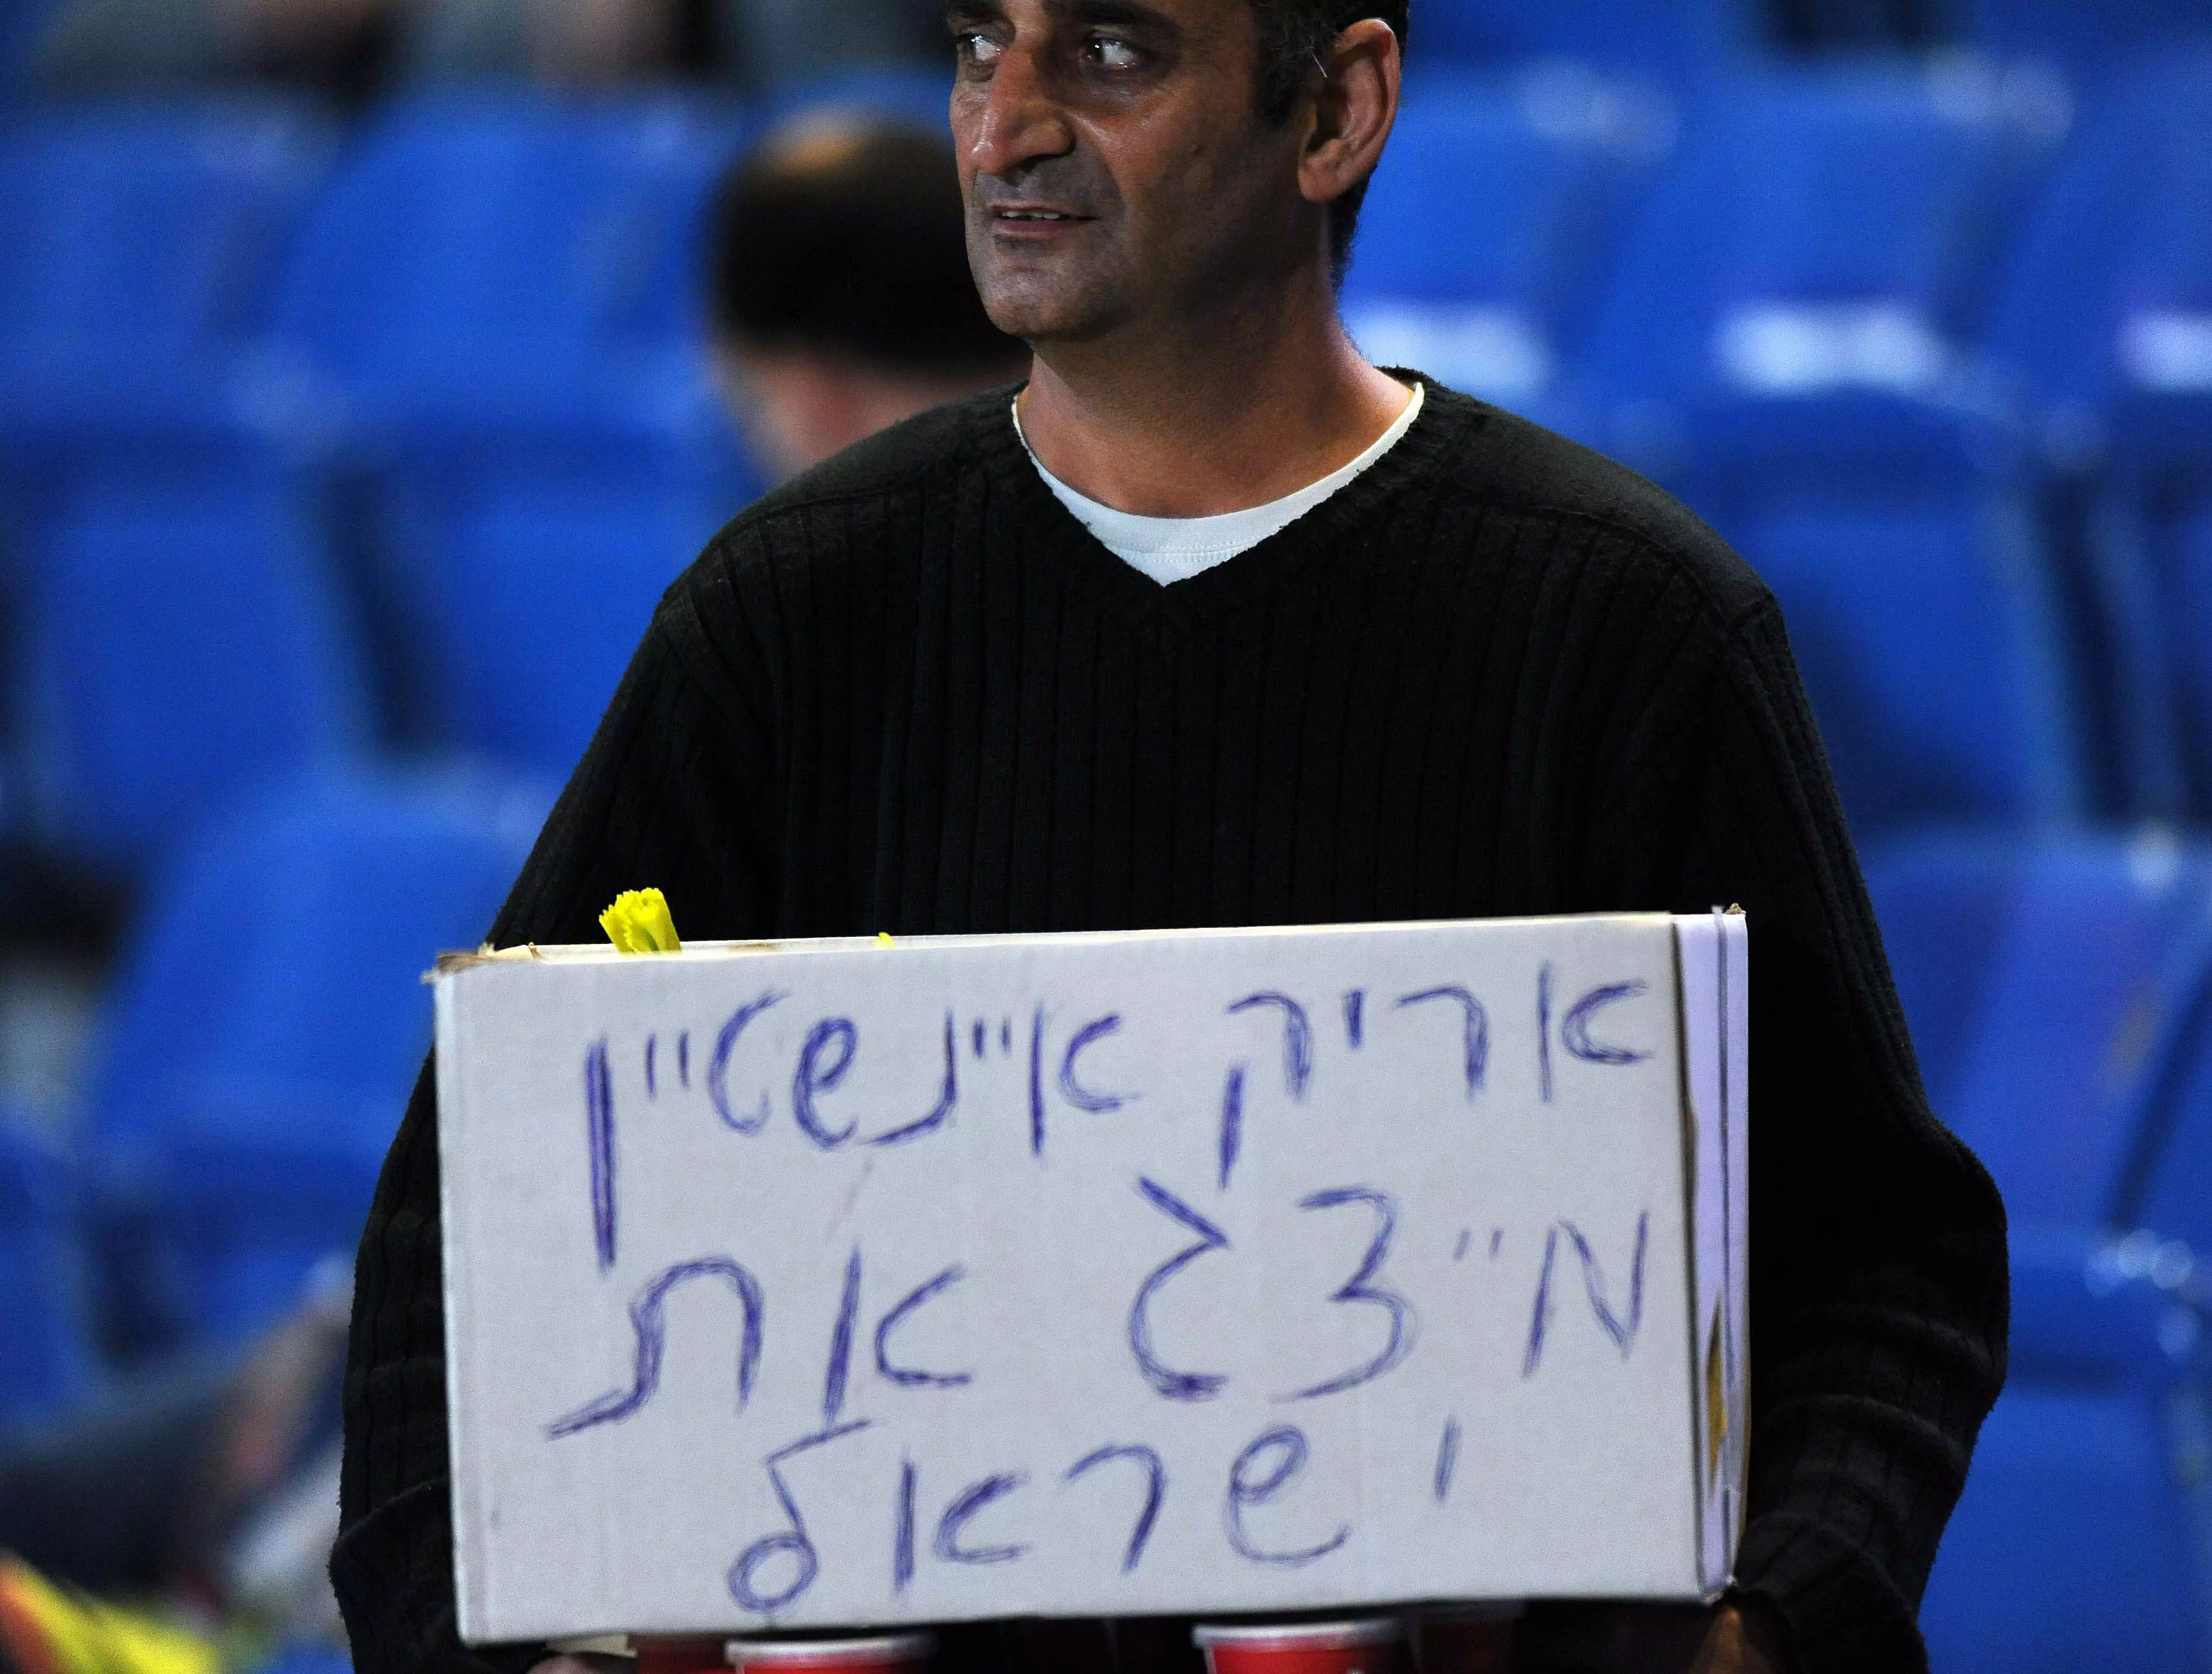 אריק איינשטיין
מייצג את
ישראל